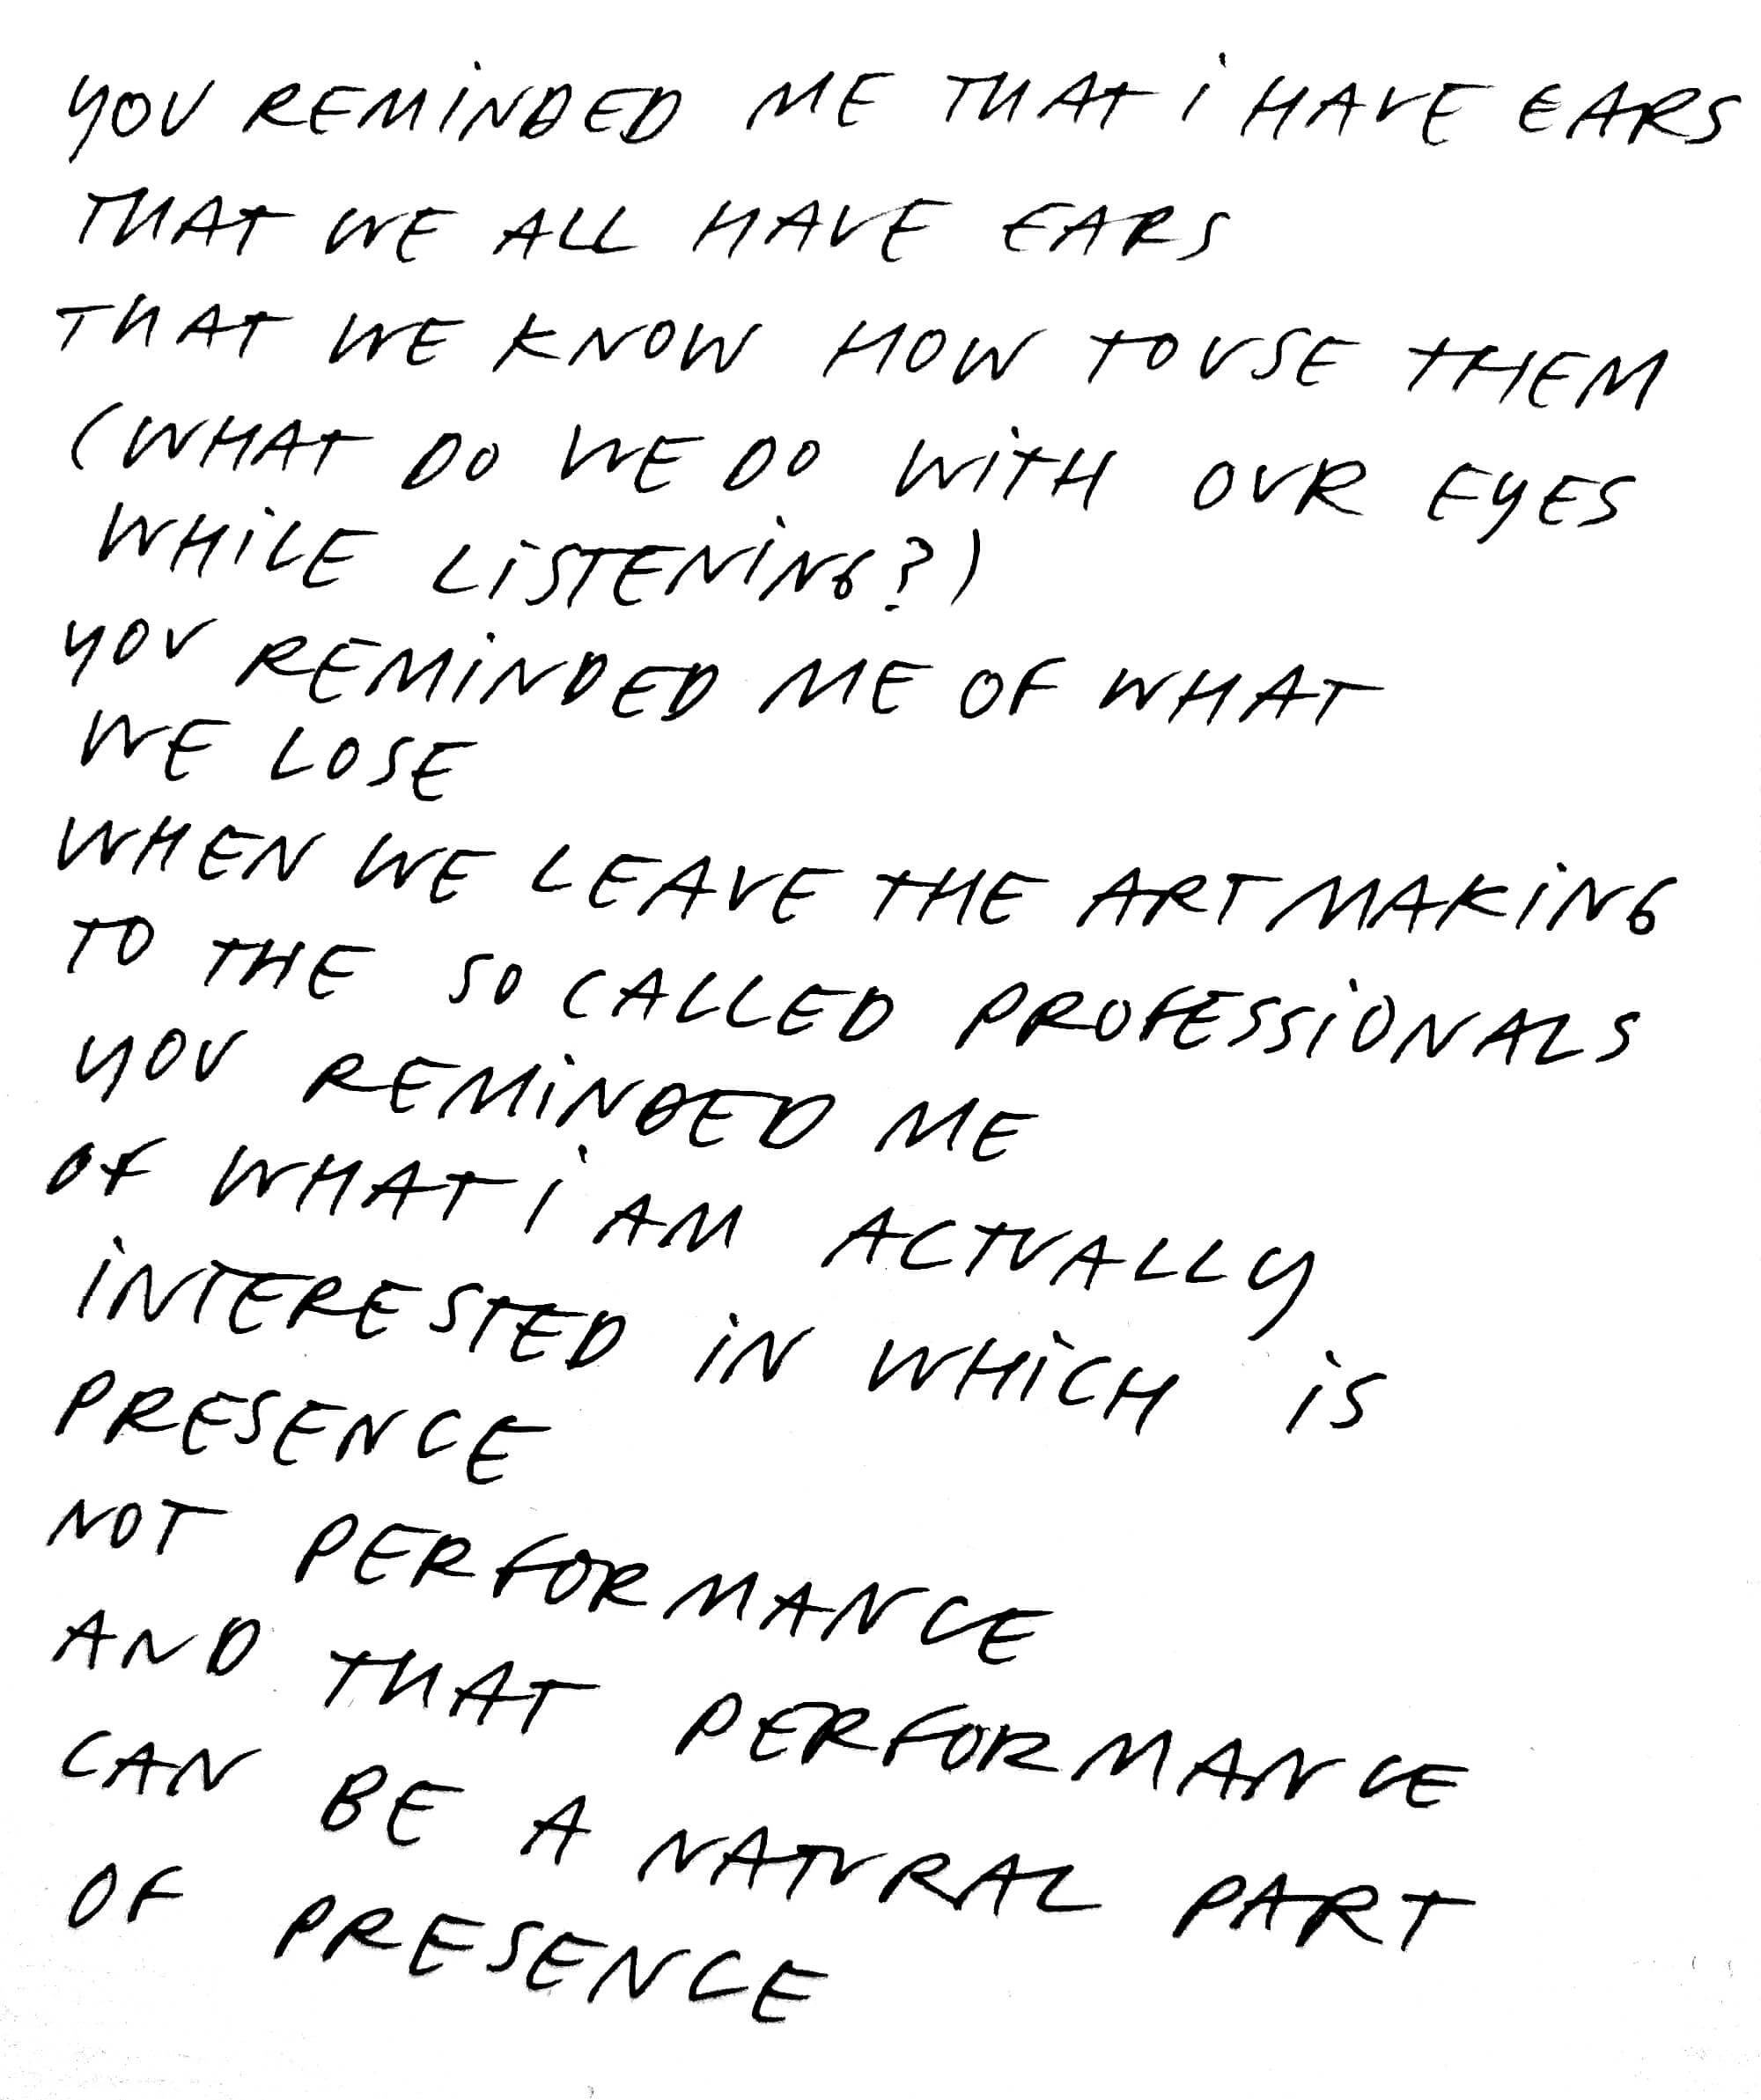 YOU REMINDED ME THAT i HAVE EARS
THAT WE ALL HAVE EARS
THAT WE KNOW HOW TO USE THEM
(WHAT DO WE DO WiTH OUR EYES
WHiLE LiSTENiNG?)
YOU REMiNDED ME OF WHAT
WE LOSE
WHEN WE LEAVE THE ARTMAKiNG
TO THE SO CALLED PROFESSiONALS
YOU REMiNDED ME
OF WHAT i AM ACTUALLY
iNTERESTED iN WHiCH iS
PRESENCE
NOT PERFORMANCE
AND THAT PERFORMANCE
CAN BE A NATURAL PART
OF PRESENCE